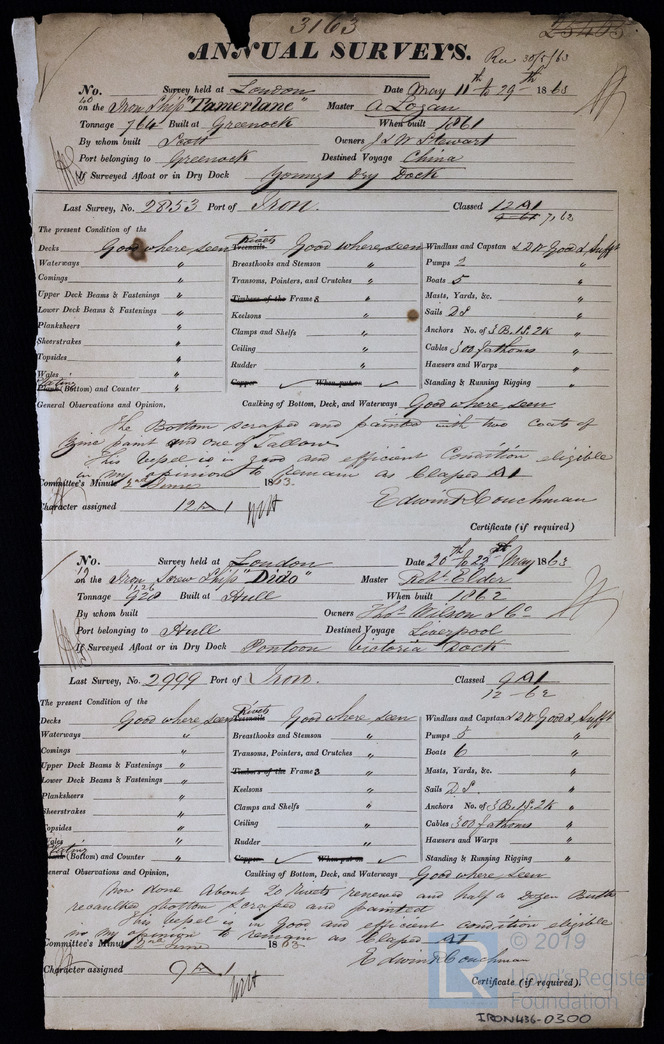 3163
ANNUAL SURVEYS.
Rec 30/5/63
No. Survey held at London Date May 11th to 29th 1863
on the Iron Ship "Tamerlane" Master A Logan
Tonnage 764 Built at Greenock When built 1861
By whom built Scott Owners J & W Stewart
Port belonging to Greenock Destined Voyage China
If Surveyed Afloat or in Dry Dock Youngs Dry Dock
Last Survey, No. 2853 Port of Iron. Classed 12 A1
7,62
The present Condition of the
Decks Good where seen Rivets Treenails Good where seen Windlass and Capstan 2 DW Good & Sufft
Waterways " Breasthooks and Stemson " Pumps 2 "
Comings " Transoms, Pointers, and Crutches " Boats 5 "
Upper Deck Beams & Fastenings " Timbers of the Frames " Masts, Yards, &c. "
Lower Deck Beams & Fastenings " Keelsons " Sails DS "
Planksheers " Clamps and Shelfs " Anchors No. of 3B.1S.2K "
Sheerstrakes " Ceiling " Cables 300 fathoms "
Topsides " Rudder " Hawsers and Warps "
Wales "
Plating Plank (Bottom) and Counter " Copper ✓ When put on ✓ Standing & Running Rigging "
General Observations and Opinion, Caulking of Bottom, Deck, and Waterways Good where seen
The Bottom scraped and painted with two coats of
Zinc paint and one of Tallow.
This vessel is in good and efficient Condition eligible
in my opinion to remain as Classed A1
Committee's Minute 2nd June 1863.
Edwin Couchman
Character assigned 12 A 1
Certificate (if required)
No. Survey held at London Date 20th to 22nd May 1863
on the Iron Screw Ship "Dido" Master Robt Elder
1126
Tonnage 928 Built at Hull When built 1862
By whom built Owners Thos Wilson & Co
Port belonging to Hull Destined Voyage Liverpool
If Surveyed Afloat or in Dry Dock Pontoon Victoria Dock
Last Survey, No. 2999 Port of Iron. Classed 9 A1
12-62
The present Condition of the
Decks Good where seen Rivets Treenails Good where seen Windlass and Capstan 2 DW Good & Sufft
Waterways " Breasthooks and Stemson " Pumps 5 "
Comings " Transoms, Pointers, and Crutches " Boats 6 "
Upper Deck Beams & Fastenings " Timbers of the Frames " Masts, Yards, &c. "
Lower Deck Beams & Fastenings " Keelsons " Sails D.S. "
Planksheers " Clamps and Shelfs " Anchors No. of 3B.1S.2K "
Sheerstrakes " Ceiling " Cables 300 fathoms "
Topsides " Rudder " Hawsers and Warps "
Wales "
Plating (Bottom) and Counter " Copper ✓ When put on ✓ Standing & Running Rigging "
General Observations and Opinion, Caulking of Bottom, Deck, and Waterways Good where seen
Now done About 20 Rivets renewed and half a dozen Butts
recaulked bottom scraped and painted
This vessel is in good and efficient condition eligible
in my opinion to remain as Classed A1
Committee's Minute 2nd June 1863.
Edwin Couchman
Character assigned 9 A 1
Certificate (if required).
© 2019
LR
Lloyd's Register
Foundation
IRON436-0300